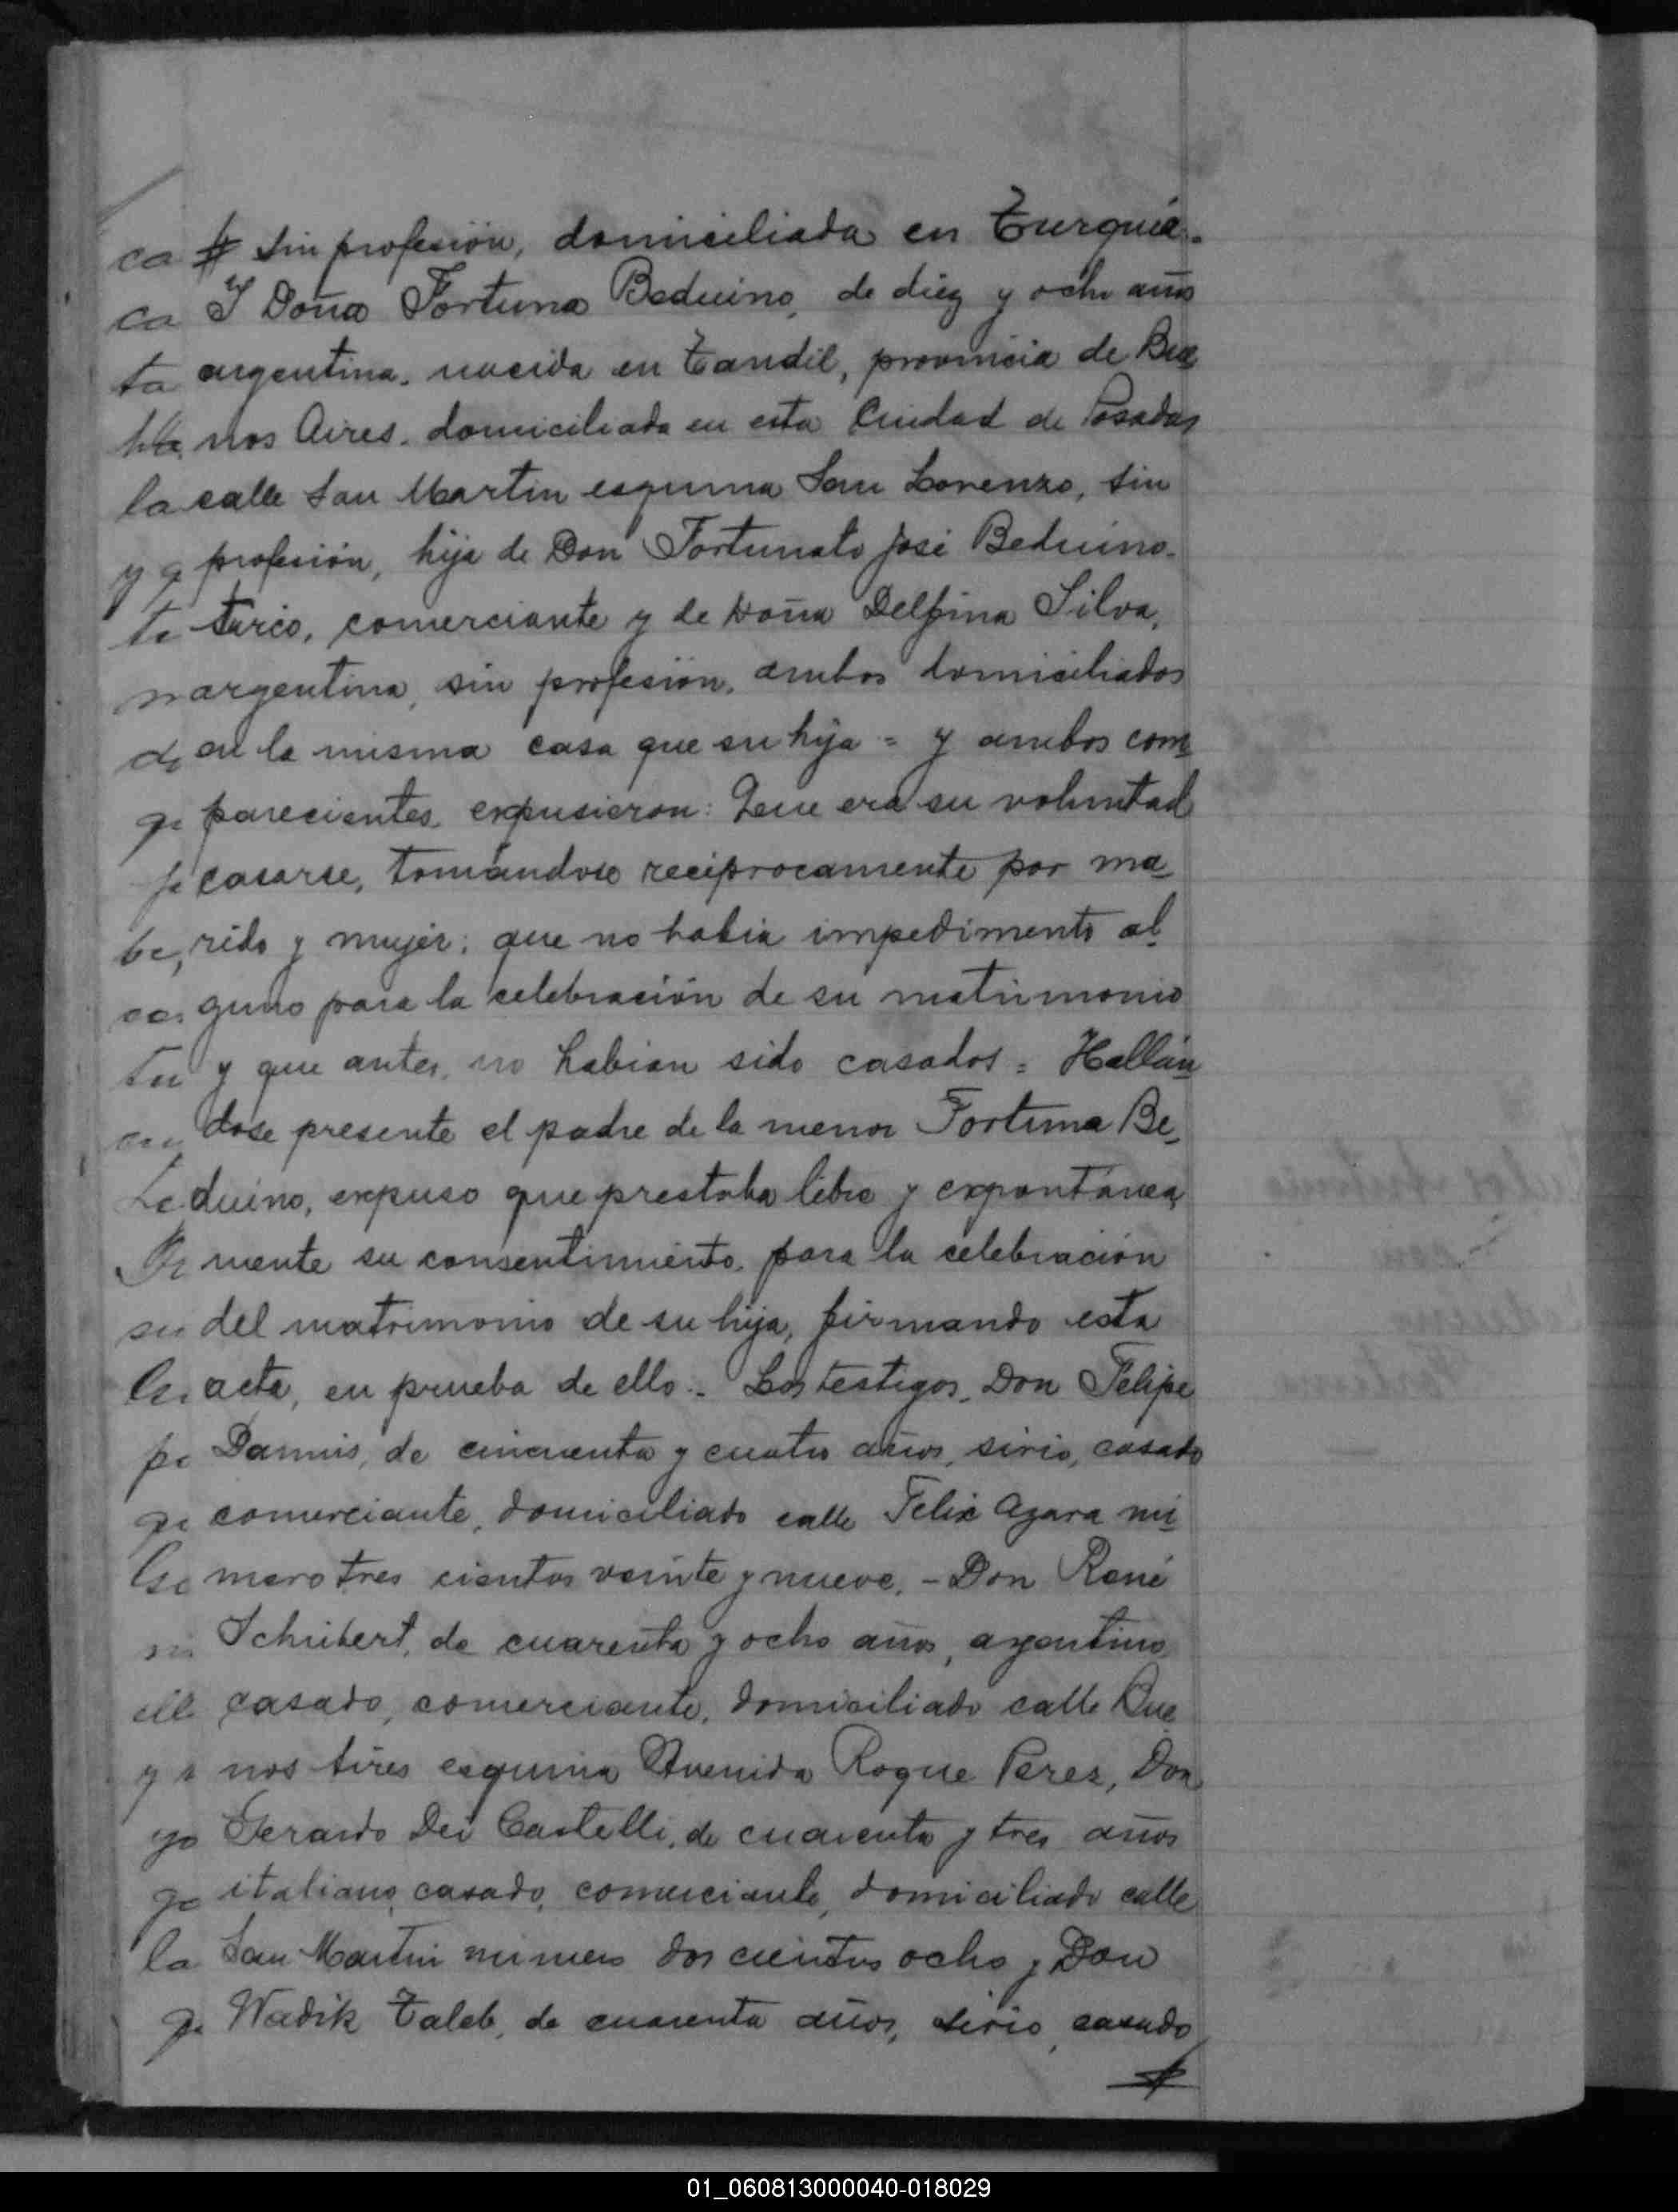 ca # sin profesión, domiciliada en Turquía.
ca Y Doña Fortuna Beduino, de diez y ocho años
ta argentina, nacida en Tandil, provincia de Bue
nos Aires, domiciliada en esta Ciudad de Posadas
la calle San Martin esquina San Lorenzo, sin
y q profesión, hija de Don Fortunato José Beduino.
te turco, comerciante y de Doña Delfina Silva,
argentina, sin profesión, ambos domiciliados
de en la misma casa que su hija = y ambos com
qe parecientes expusieron: Que era su voluntad
casarse, tomándose recíprocamente por ma
be, rido y mujer; que no habia impedimento al
guno para la celebración de su matrimonio
tu y que antes no habian sido casados = Hallán
dose presente el padre de la menor Fortuna Be
duino, expuso que prestaba libre y expontánea
mente su consentimiento para la celebración
su del matrimonio de su hija, firmando esta
acta, en prueba de ello.= Los testigos, Don Felipe
pe Damus, de cincuenta y cuatro años, sirio, casado
qe comerciante, domiciliado calle Felix Azara nú
mero tres cientos veinte y nueve. - Don René
Schubert, de cuarenta y ocho años, argentino
casado, comerciante, domiciliado calle Bue
nos Aires esquina Avenida Roque Perez, Don
yo Gerardo Dei Castelli, de cuarenta y tres años
italiano, casado, comerciante, domiciliado calle
la San Martin número dos cientos ocho y Don
Wadik Taleb, de cuarenta años, sirio, casado
#
01_060813000040-018029